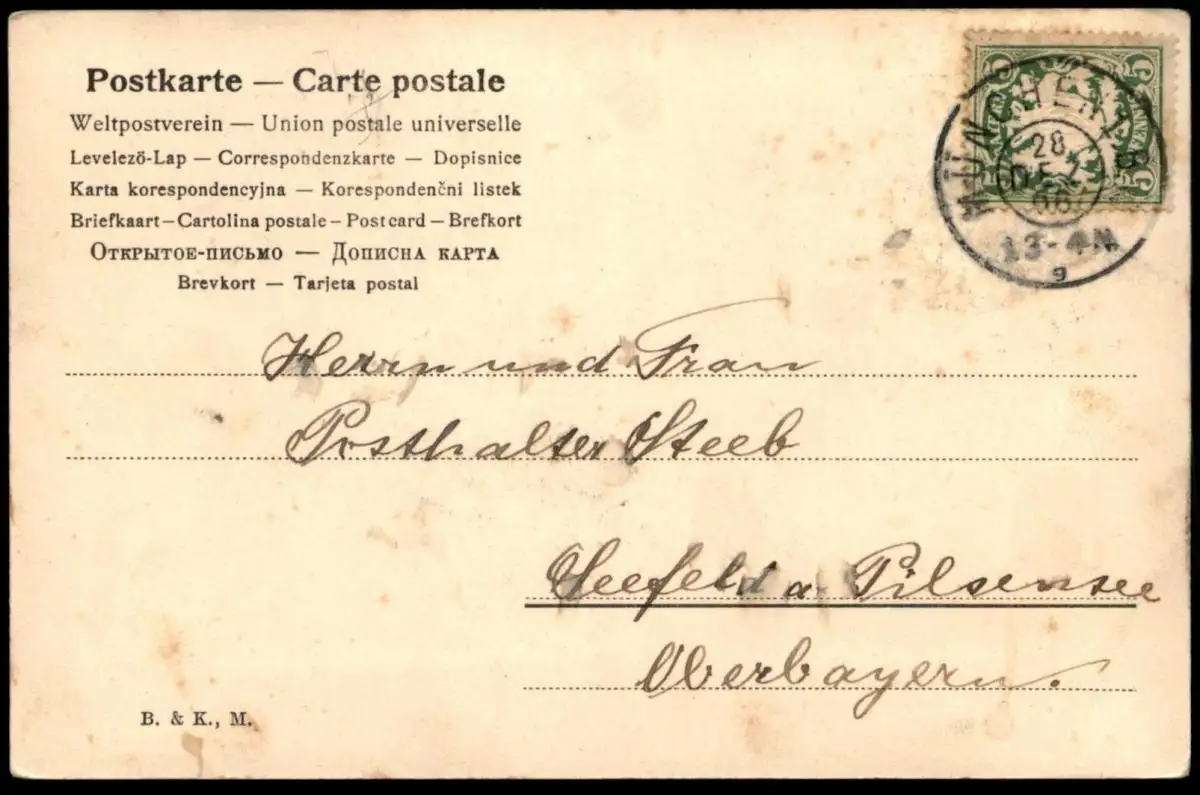 Postkarte — Carte postale
Weltpostverein — Union postale universelle
Levelező-Lap — Correspondenzkarte — Dopisnice
Karta korespondencyjna — Korespondenčni listek
Briefkaart — Cartolina postale — Post card — Brefkort
Открытое-письмо — Дописна карта
Brevkort — Tarjeta postal
5 5
MÜNCHEN
28
DEZ
3-4N
9
Herrn und Frau
Posthalter Steeb
Seefeld a. Pilsensee
Oberbayern.
B. & K., M.